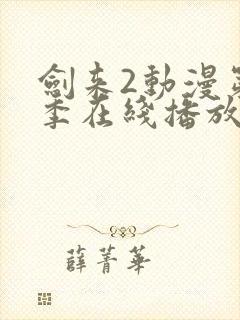 劍來2動漫第
季在綫播放
薛菁華